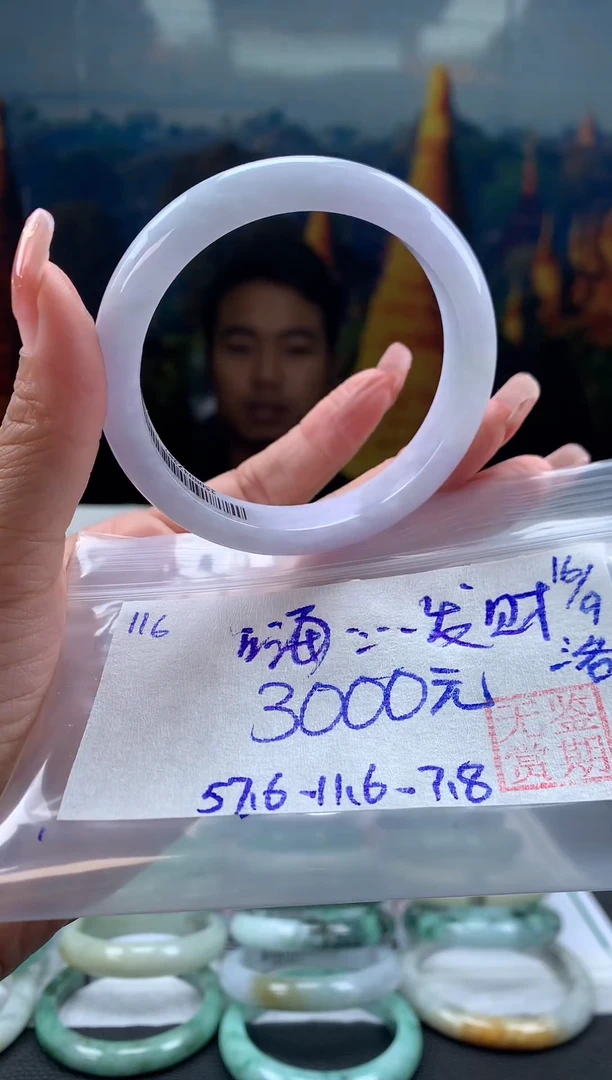 116
16/9
嗨:---发财
洛
3000元
无鉴
赏期
57.6-11.6-7.8